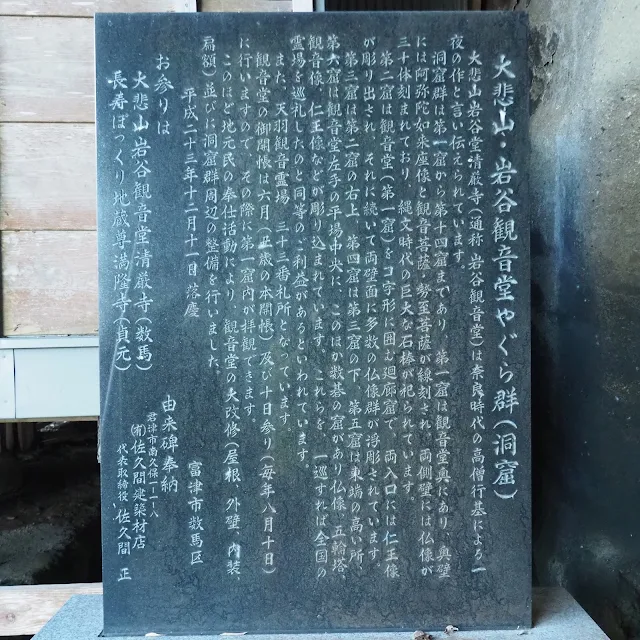 大悲山・岩谷観音堂やぐら群(洞窟)
大悲山岩谷堂清巌寺(通称 岩谷観音堂)は奈良時代の高僧行基による一
夜の作と言い伝えられています。
洞窟群は第一窟から第十四窟まであり、第一窟は観音堂奥にあり、奥壁
には阿弥陀如来座像と観音菩薩・勢至菩薩が線刻され、両側壁には仏像が
三十体刻まれており、縄文時代の巨大な石棒が祀られています。
第二窟は観音堂(第一窟)をコ字形に囲む廻廊窟で、両入口には仁王像
が彫り出され、それに続いて両壁面に多数の仏像群が浮彫されています。
第三窟は第二窟の右上、第四窟は第三窟の下、第五窟は東端の高い所、
第六窟は観音堂左手の平場中央に、このほか数基の窟があり仏像、五輪塔、
観音像、仁王像などが彫り込まれています。これらを、一巡すれば全国の
霊場を巡礼したのと同等のご利益があるといわれています。
また、天羽観音霊場 三十三番札所となっています。
観音堂の御開帳は六月(丑歳の本開帳)及び十日参り(毎年八月十日)
に行いますので、その際に第一窟内が拝観できます。
このほど地元民の奉仕活動により、観音堂の大改修(屋根、外壁、内装、
扁額)並びに洞窟群周辺の整備を行いました。
平成二十三年十二月十一日 落慶
富津市数馬区
お参りは
大悲山岩谷観音堂清巌寺(数馬)
長寿ぽっくり地蔵尊満隆寺(貞元)
由来碑奉納
君津市南久保一ー一ー八
(有)佐久間建築材店
代表取締役 佐久間 正